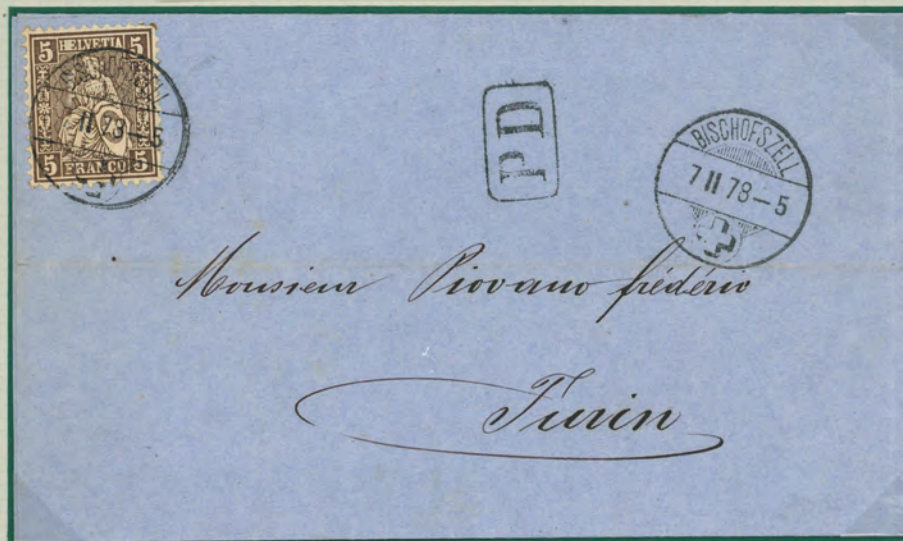 5 HELVETIA 5
5 FRANCO 5
BISCHOFSZELL
7 II 78-5
PD
BISCHOFSZELL
7 II 78-5
Monsieur Piovano frédéric
Turin